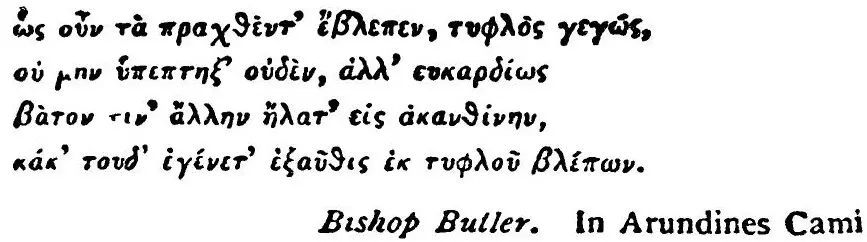 ὡς οὖν τὰ πραχθέντ’ ἔβλεπεν, τυφλὸς γεγώς,
οὐ μην ὑπεπτηξ’ οὐδὲν, ἀλλ’ ευκαρδίως
βὰτον τιν’ ἄλλην ἥλατ’ εἰς ἀκανθίνην,
κἀκ’ τουδ’ ἐγένετ’ ἐξαῦθις ἐκ τυφλοῦ βλέπων.
Bishop Butler. In Arundines Cami